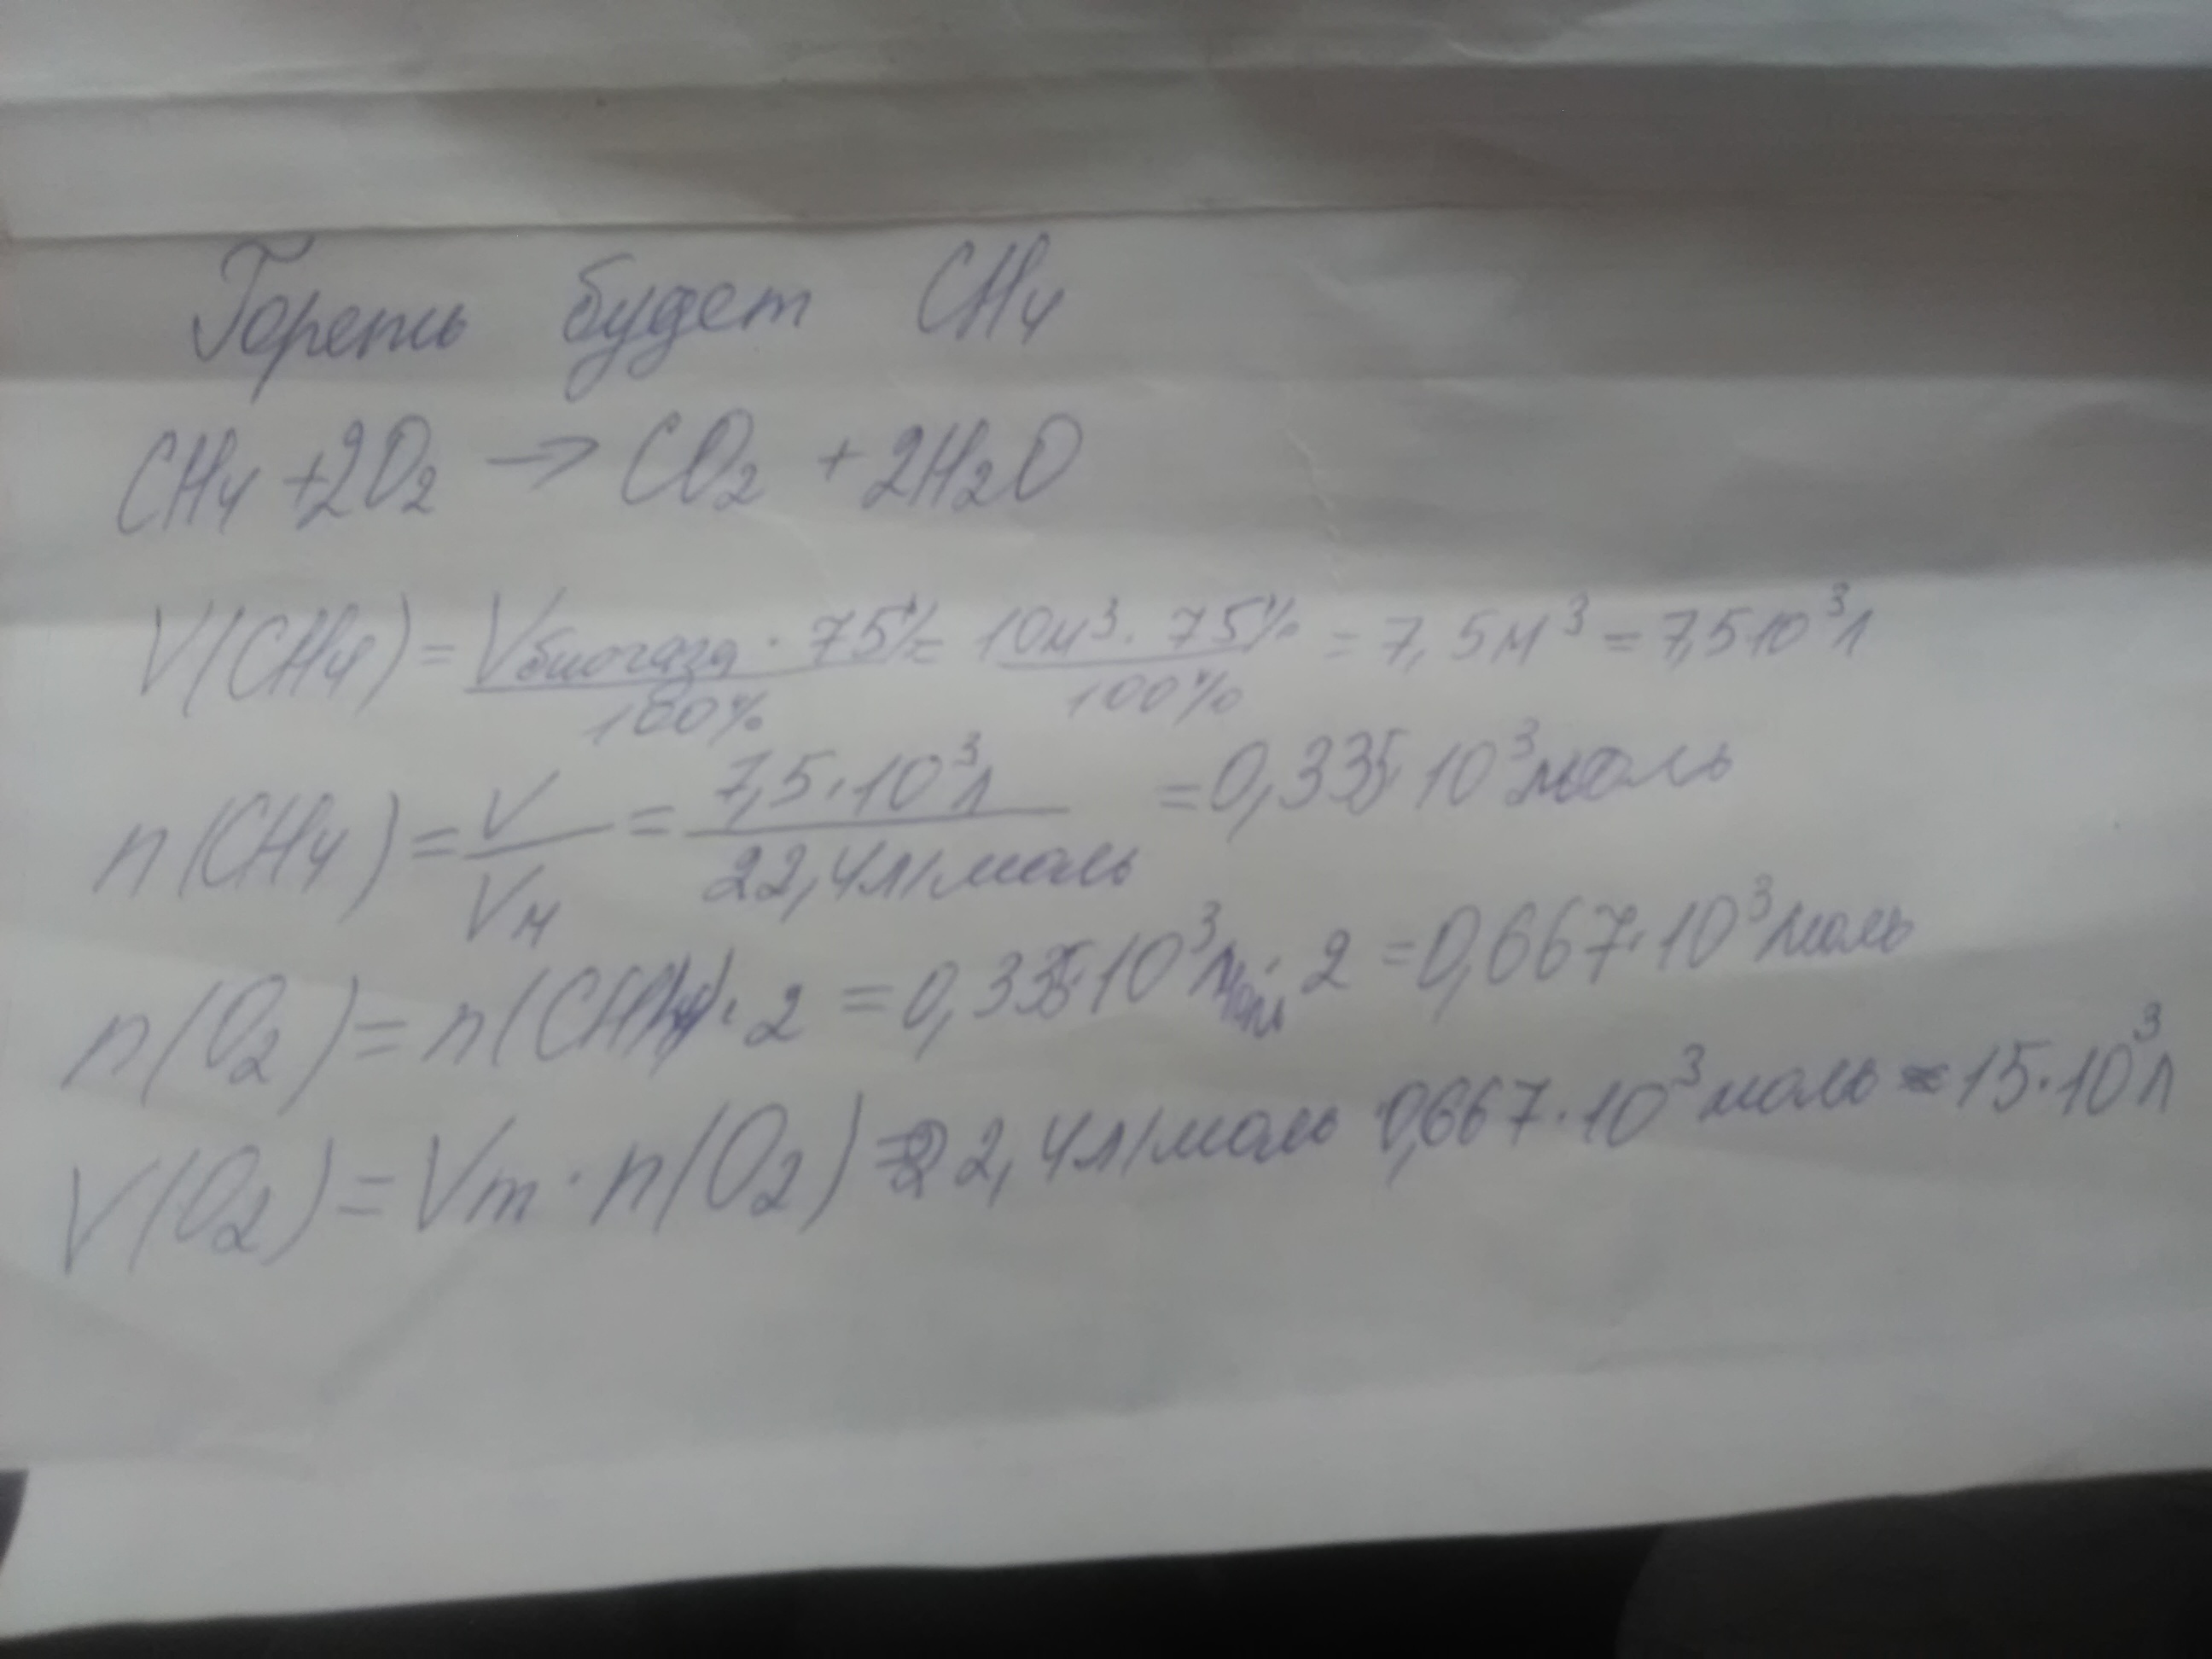 Гореть будет CH4
CH4 + 2O2 → CO2 + 2H2O
V(CH4) = Vбиогаза · 75% / 100% = 10м³ · 75% / 100% = 7,5м³ = 7,5 10³л
n(CH4) = V / Vм = 7,5 · 10³л / 22,4л/моль = 0,335 10³моль
n(O2) = n(CH4) · 2 = 0,335·10³моль · 2 = 0,667·10³моль
V(O2) = Vm · n(O2) = 22,4л/моль · 0,667·10³моль = 15·10³л